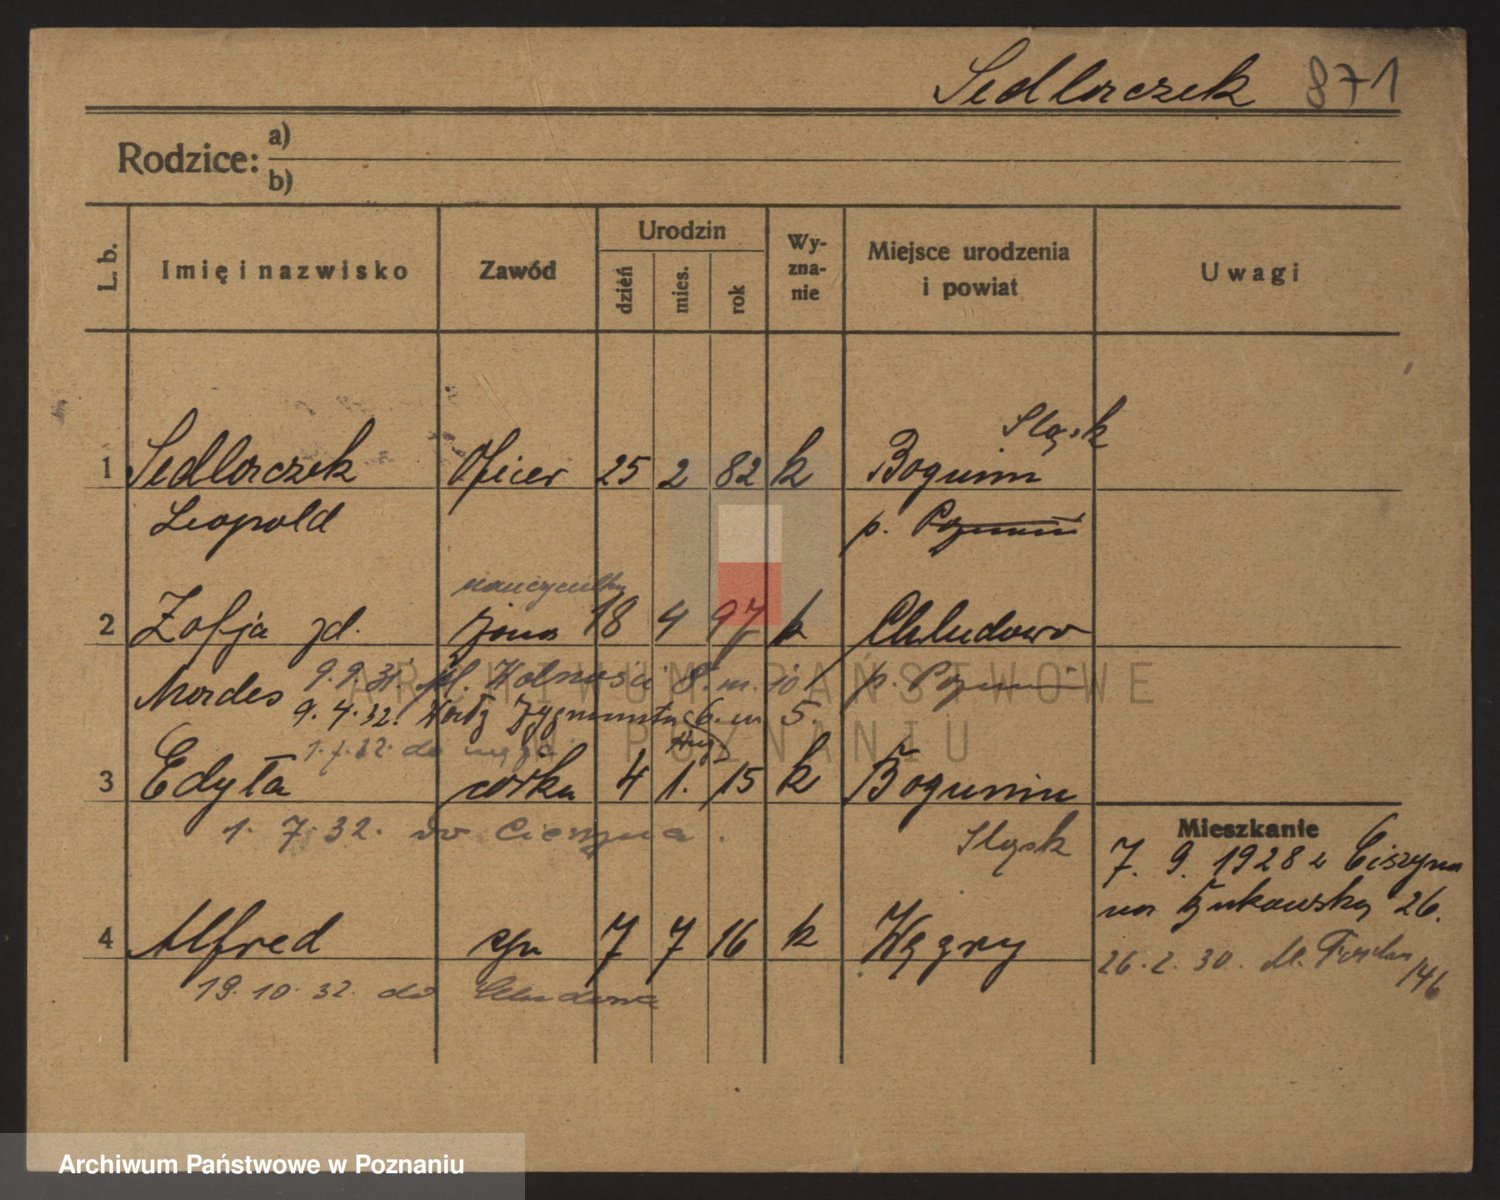 Sedlorczek 871
Rodzice: a)
b)
L. b. Imię i nazwisko Zawód Urodzin dzień mies. rok Wy-zna-nie Miejsce urodzenia i powiat Uwagi
Śląsk
1 Sedlorczek Oficer 25 2 82 k Bogumin
Leopold p. Poznań
nauczycielka
2 Zofja zd. żona 18 4 97 k Chludowo
Mordes 9.9.31. pl. Wolności 8. m. 10 p. Poznań
9.4.32. Zygmunta 6. m 5.
1.7.32. do
3 Edyta córka 4 1. 15 k Bogumin
1. 7. 32. do Cieszyna. Śląsk
Mieszkanie
7. 9. 1928 z Cieszyna
na Bukowską 26.
4 Alfred syn 7 7 16 k Węgry
26.2.30. M. Focha 146
19.10.32. do Chludowa
ARCHIWUM PAŃSTWOWE
W POZNANIU
Archiwum Państwowe w Poznaniu